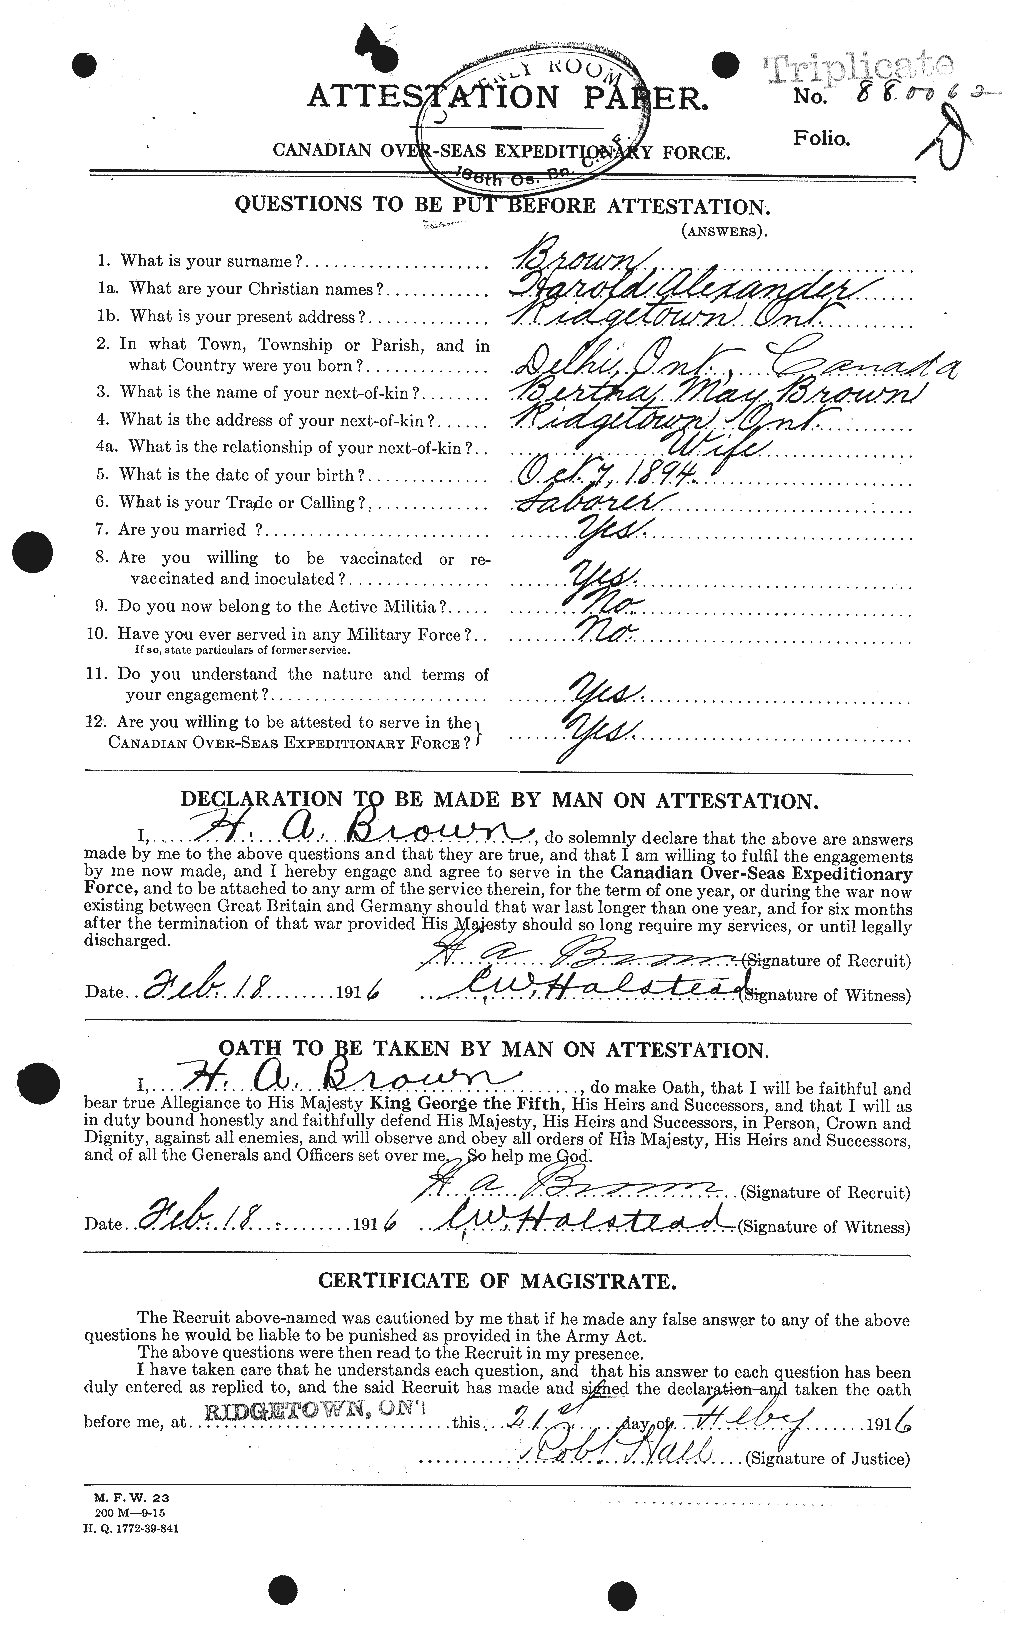 Triplicate
ORDERLY ROOM
ATTESTATION PAPER.
No. 880062
Folio.
CANADIAN OVER-SEAS EXPEDITIONARY FORCE.
186th Os. Bn. C.E.F.
QUESTIONS TO BE PUT BEFORE ATTESTATION.
(ANSWERS).
1. What is your surname? Brown
1a. What are your Christian names? Harold Alexander
1b. What is your present address? Ridgetown, Ont.
2. In what Town, Township or Parish, and in
what Country were you born? Delhi, Ont., Canada
3. What is the name of your next-of-kin? Bertha May Brown
4. What is the address of your next-of-kin? Ridgetown, Ont.
4a. What is the relationship of your next-of-kin? Wife
5. What is the date of your birth? Oct. 7, 1894.
6. What is your Trade or Calling? Laborer
7. Are you married ? Yes.
8. Are you willing to be vaccinated or re-
vaccinated and inoculated? Yes.
9. Do you now belong to the Active Militia? No.
10. Have you ever served in any Military Force? No.
If so, state particulars of former service.
11. Do you understand the nature and terms of
your engagement? Yes.
12. Are you willing to be attested to serve in the
CANADIAN OVER-SEAS EXPEDITIONARY FORCE? Yes.
DECLARATION TO BE MADE BY MAN ON ATTESTATION.
I, H. A. Brown, do solemnly declare that the above are answers
made by me to the above questions and that they are true, and that I am willing to fulfil the engagements
by me now made, and I hereby engage and agree to serve in the Canadian Over-Seas Expeditionary
Force, and to be attached to any arm of the service therein, for the term of one year, or during the war now
existing between Great Britain and Germany should that war last longer than one year, and for six months
after the termination of that war provided His Majesty should so long require my services, or until legally
discharged.
H A Brown (Signature of Recruit)
Date Feb. 18 1916 C.W. Halstead (Signature of Witness)
OATH TO BE TAKEN BY MAN ON ATTESTATION.
I, H. A. Brown, do make Oath, that I will be faithful and
bear true Allegiance to His Majesty King George the Fifth, His Heirs and Successors, and that I will as
in duty bound honestly and faithfully defend His Majesty, His Heirs and Successors, in Person, Crown and
Dignity, against all enemies, and will observe and obey all orders of His Majesty, His Heirs and Successors,
and of all the Generals and Officers set over me. So help me God.
H A Brown (Signature of Recruit)
Date Feb. 18 1916 C.W. Halstead (Signature of Witness)
CERTIFICATE OF MAGISTRATE.
The Recruit above-named was cautioned by me that if he made any false answer to any of the above
questions he would be liable to be punished as provided in the Army Act.
The above questions were then read to the Recruit in my presence.
I have taken care that he understands each question, and that his answer to each question has been
duly entered as replied to, and the said Recruit has made and signed the declaration and taken the oath
before me, at RIDGETOWN, ONT this 21st day of Feby 1916
Robt Hall (Signature of Justice)
M. F. W. 23
200 M—9-15
H. Q. 1772-39-841